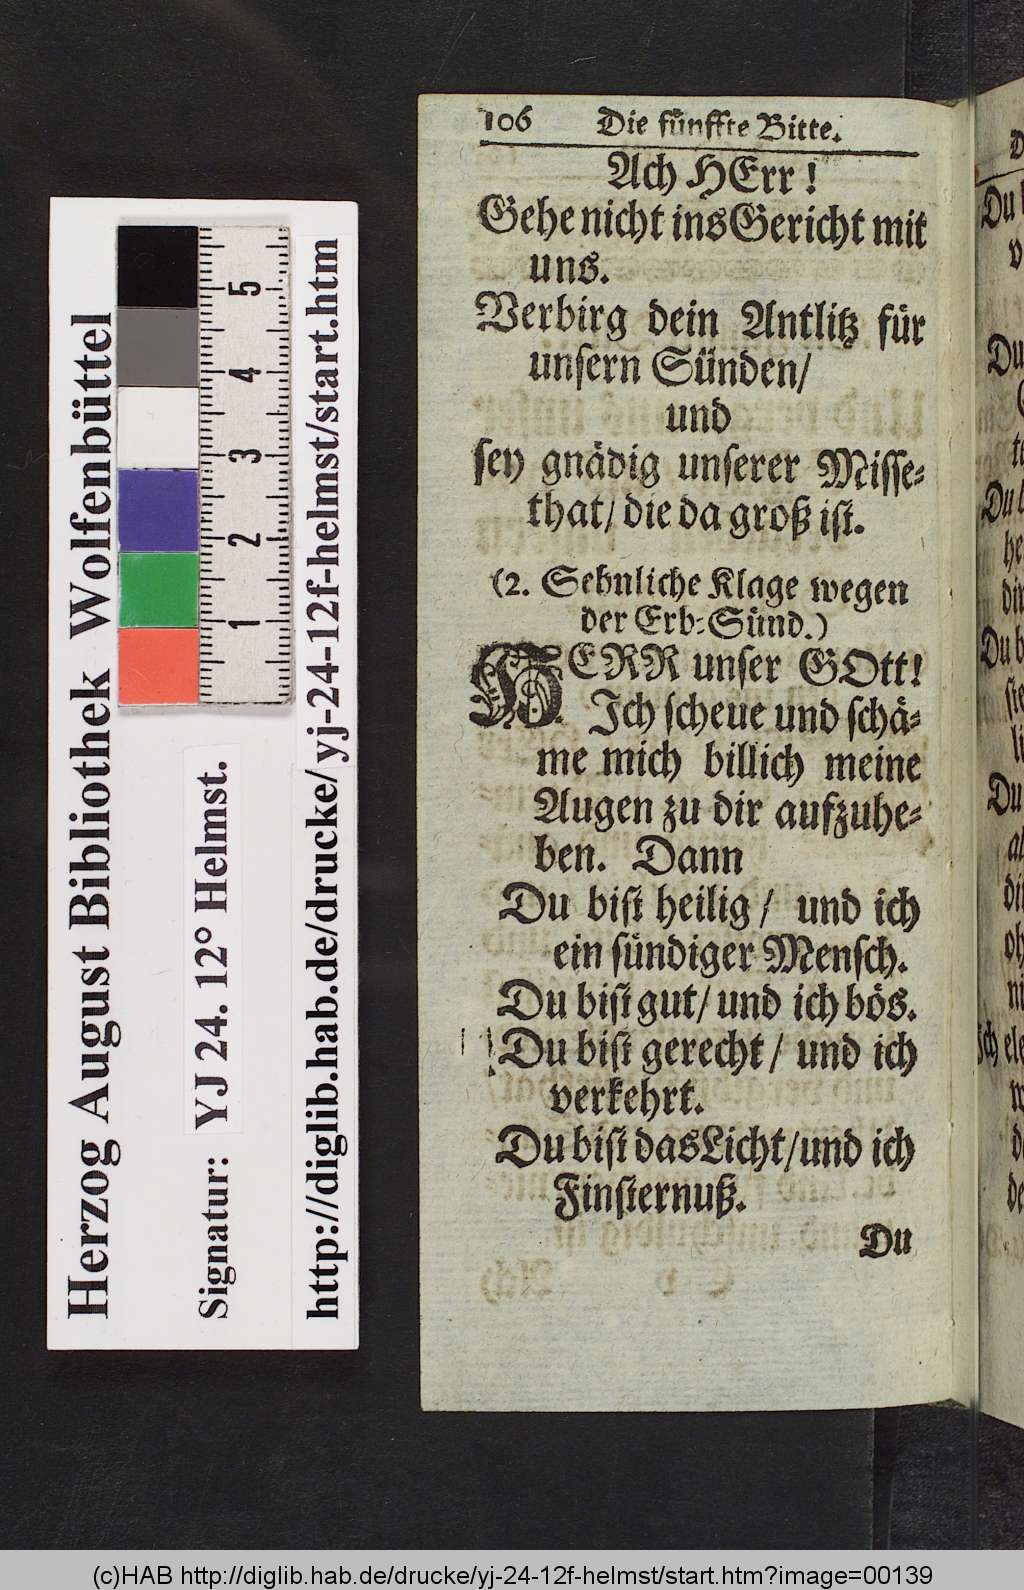 106 Die fünffte Bitte.
Ach HErr!
Gehe nicht ins Gericht mit
uns.
Verbirg dein Antlitz für
unsern Sünden/
und
sey gnädig unserer Misse-
that/ die da groß ist.
(2. Sehnliche Klage wegen
der Erb-Sünd.)
HERR unser GOtt!
Ich scheue und schä-
me mich billich meine
Augen zu dir aufzuhe-
ben. Dann
Du bist heilig/ und ich
ein sündiger Mensch.
Du bist gut/ und ich bös.
Du bist gerecht/ und ich
verkehrt.
Du bist das Licht/ und ich
Finsternuß.
Du
Herzog August Bibliothek Wolfenbüttel
Signatur: YJ 24. 12° Helmst.
http://diglib.hab.de/drucke/yj-24-12f-helmst/start.htm
1 2 3 4 5
Du
Du
Du
Du
(c)HAB http://diglib.hab.de/drucke/yj-24-12f-helmst/start.htm?image=00139